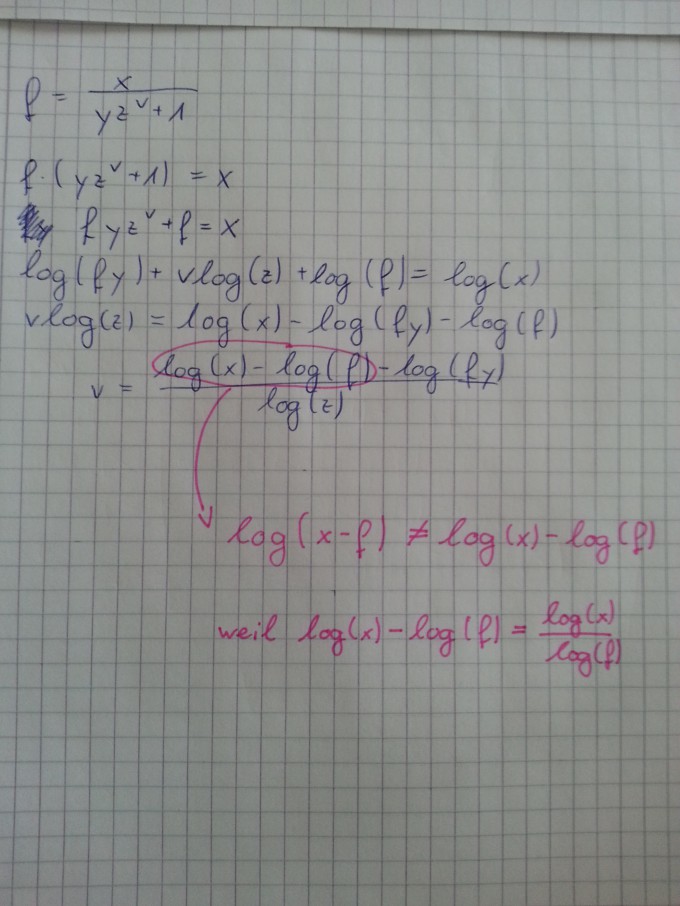 f = x / (yz^v + 1)
f · (yz^v + 1) = x
f yz^v + f = x
log(fy) + v log(z) + log(f) = log(x)
v log(z) = log(x) - log(fy) - log(f)
v = (log(x) - log(f) - log(fy)) / log(z)
log(x-f) ≠ log(x) - log(f)
weil log(x) - log(f) = log(x) / log(f)